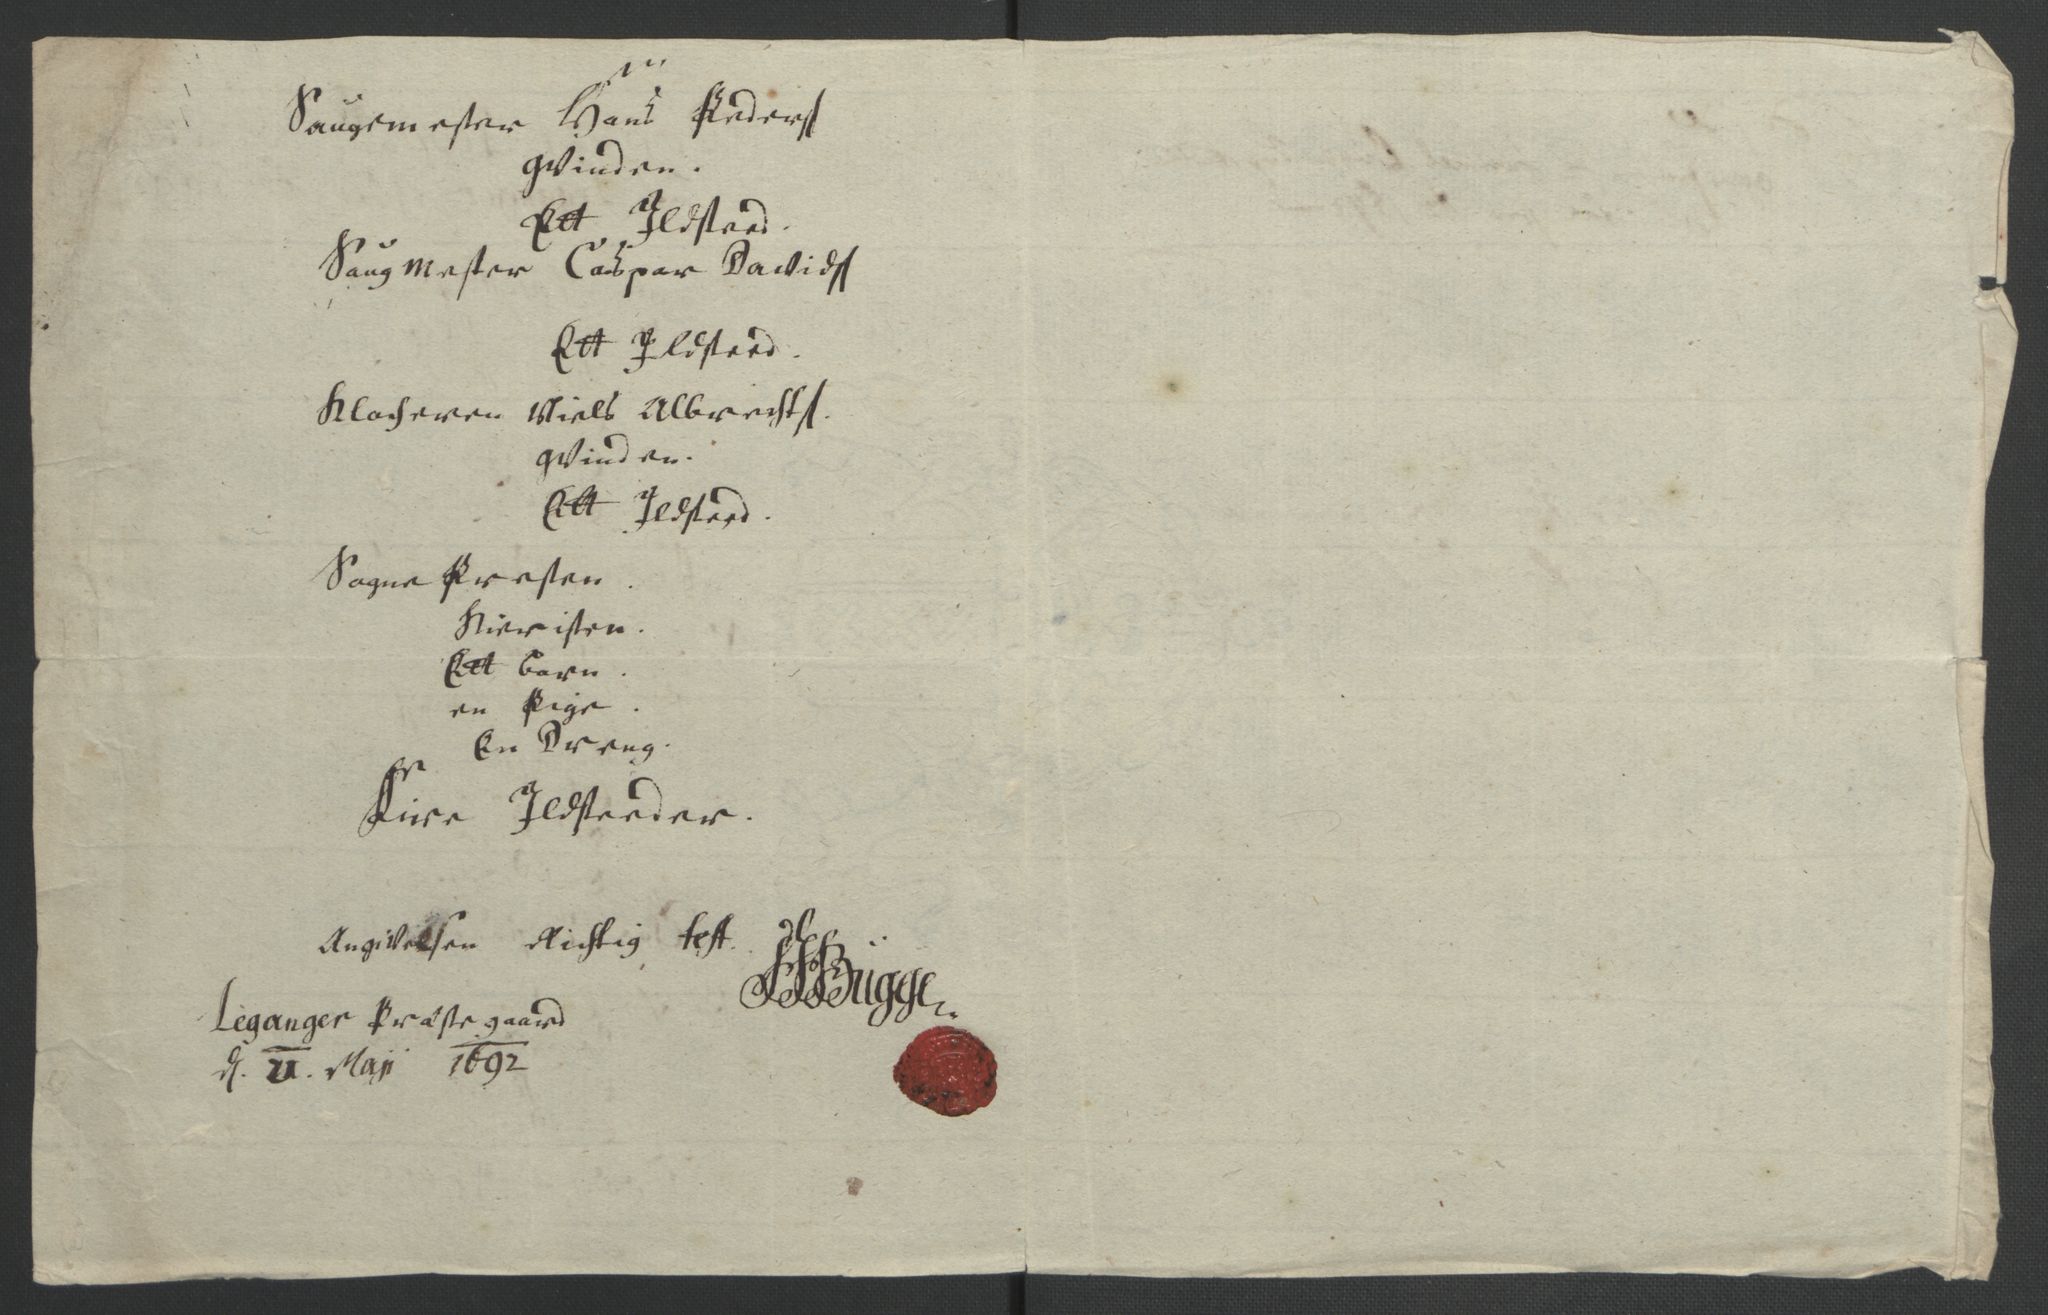 Saugemester Hans Peders
qvinden.
Ett Ildsteed.
Saugmester Caspar Davids
Ett Ildsteed.
Klocheren Niels Albrechts.
qvinden.
Ett Ildsteed.
Sogne Presten.
Kieristen.
Ett barn.
en Pige.
En Dreng.
Fire Ildsteeder.
Angivelsen Richtig test.
Bügge
Leganger Præstegaard
d. 21. Maji 1692